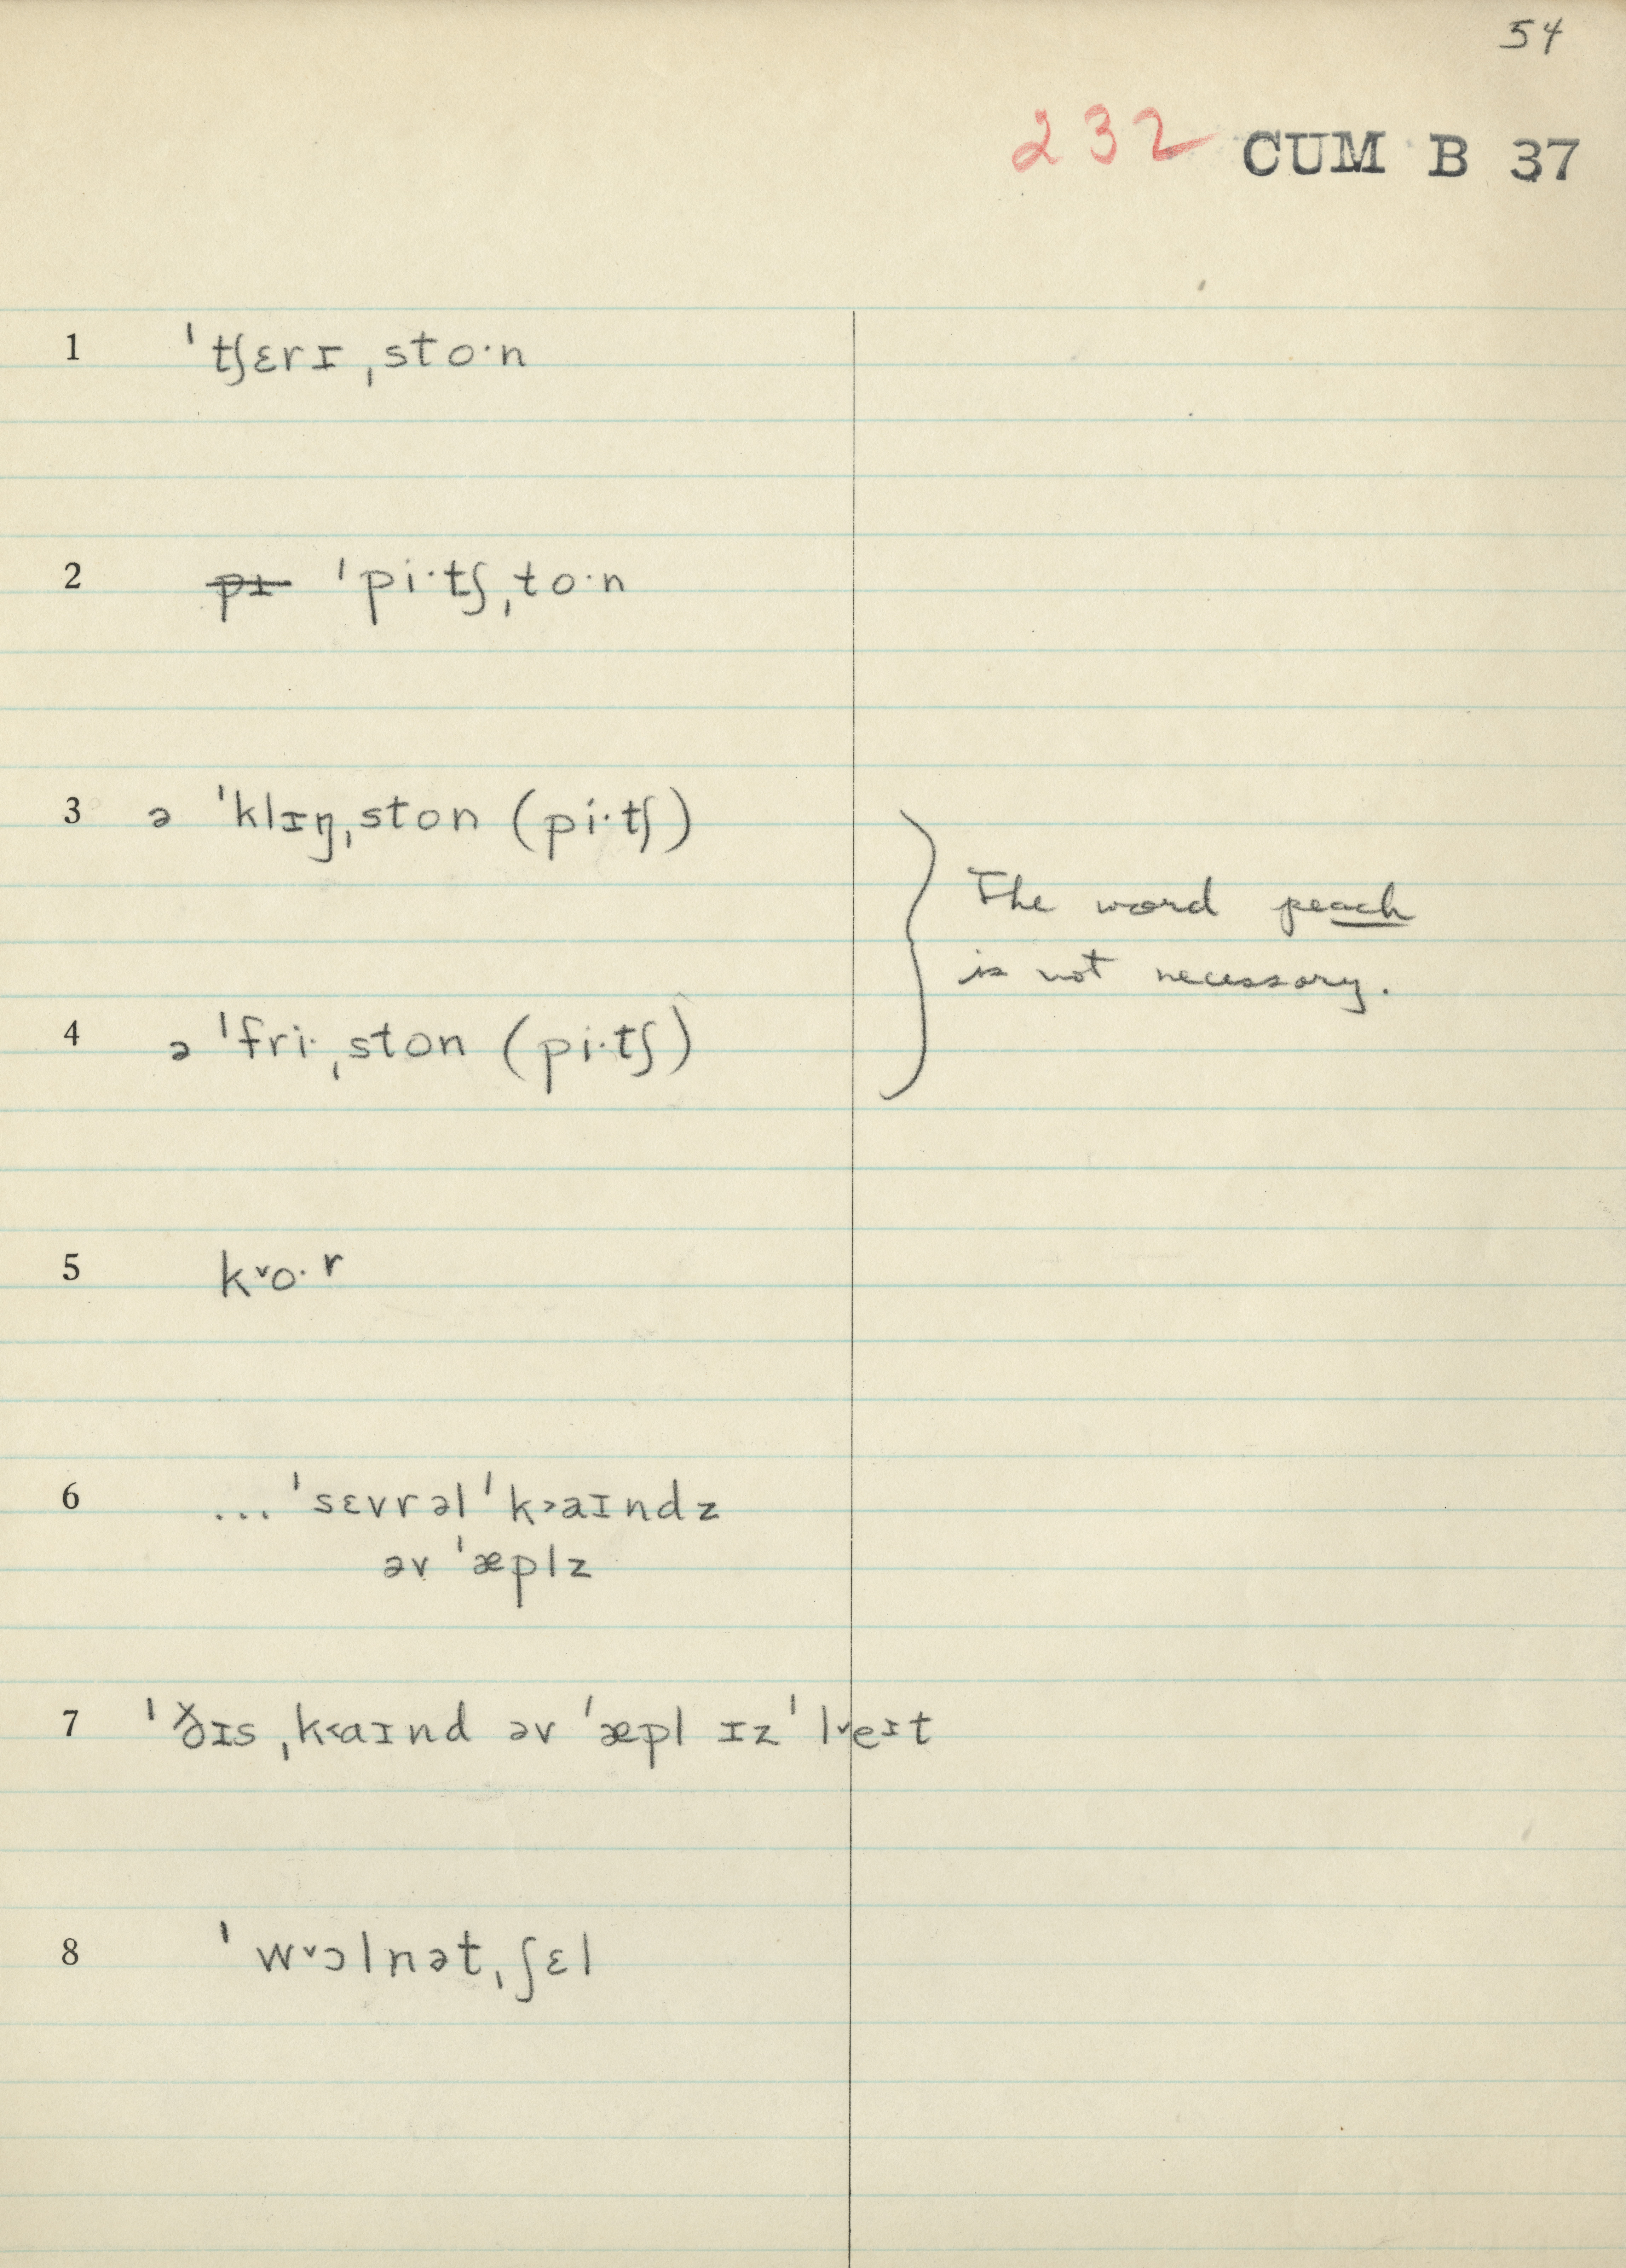 54
232 CUM B 37
1 ˈtʃɛrɪˌsto·n
2 ~~pɪ~~ ˈpi·tʃˌto·n
3 ə ˈklɪŋˌston (pi·tʃ)
The word peach
is not necessary.
4 ə ˈfri·ˌston (pi·tʃ)
5 k˅o·r
6 ... ˈsɛvrəl ˈk˃aɪndz
əv ˈæplz
7 ˈðɪs ˌk˂aɪnd əv ˈæpl ɪz ˈl˅eɪt
8 ˈw˅ɔlnətˌʃɛl